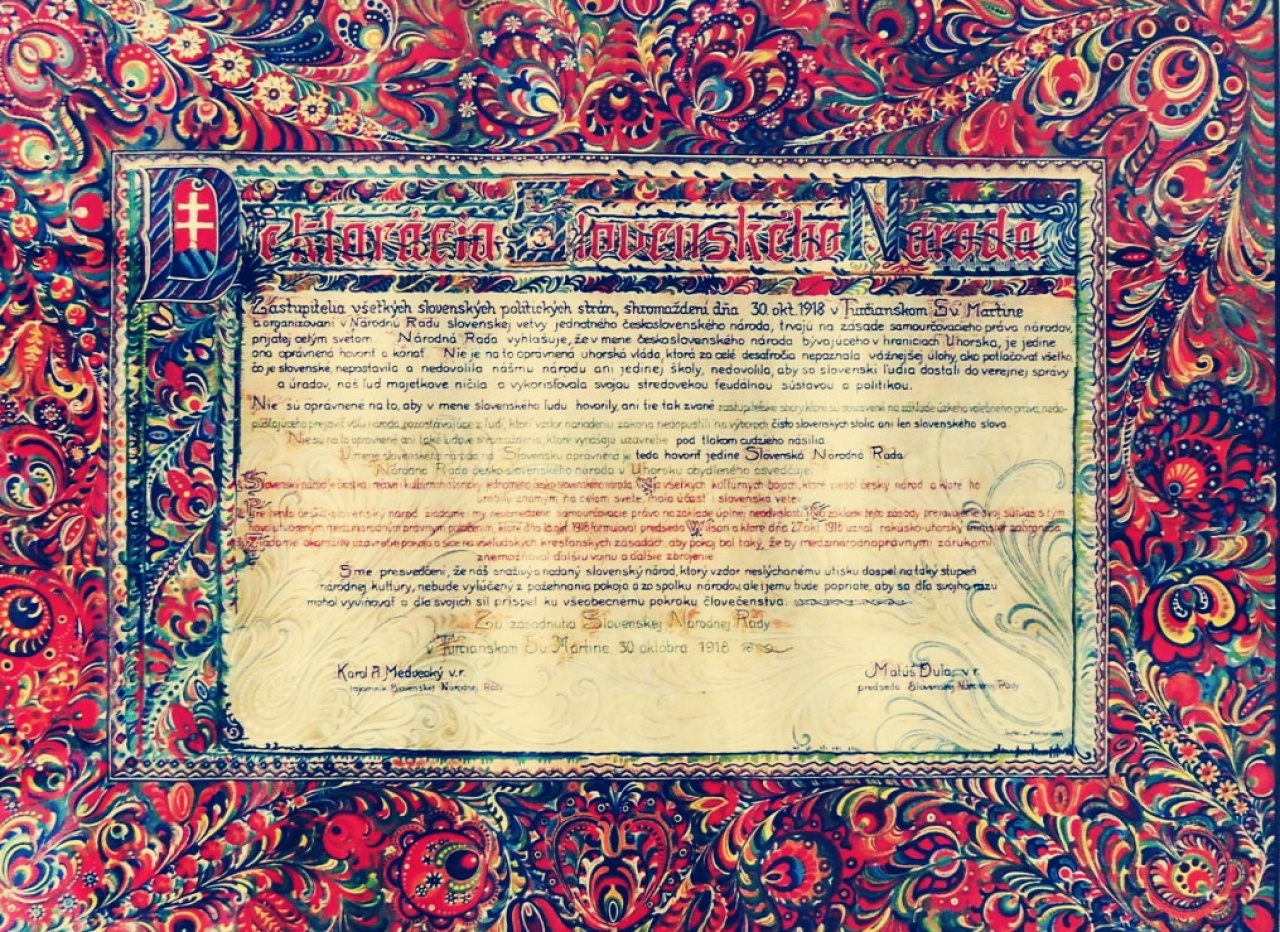 Deklarácia Slovenského Národa
Zástupitelia všetkých slovenských politických strán, shromaždení dňa 30. okt. 1918 v Turčianskom Sv. Martine
a organizovaní v Národnú Radu slovenskej vetvy jednotného československého národa, trvajú na zásade samourčovacieho práva národov,
prijatej celým svetom Národná Rada vyhlašuje, že v mene československého národa bývajúceho v hraniciach Uhorska, je jedine
ona oprávnená hovoriť a konať. Nie je na to oprávnená uhorská vláda, ktorá za celé desaťročia nepoznala vážnejšej úlohy, ako potlačovať všetko,
čo je slovenské, nepostavila a nedovolila nášmu národu ani jedinej školy, nedovolila, aby sa slovenskí ľudia dostali do verejnej správy
a úradov, náš ľud majetkove ničila a vykorisťovala svojou stredovekou feudálnou sústavou a politikou.
Nie sú oprávnené na to, aby v mene slovenského ľudu hovorily, ani tie tak zvané zastupiteľské sbory, ktoré sú sostavené na základe úzkeho volebného práva, nedo-
púšťajúceho prejaviť vôľu národa, pozostávajúce z ľudí, ktorí vzdor nariadeniu zákona nedopustili na výboroch čisto slovenských stolíc ani len slovenského slova.
Nie sú na to oprávnené ani také ľudové shromaždenia, ktoré vynášajú uzavretie pod tlakom cudzieho násilia.
V mene slovenského národa na Slovensku oprávnená je teda hovoriť jedine Slovenská Národná Rada.
Národná Rada česko-slovenského národa v Uhorsku obydleného osvedčuje:
Slovenský národ je čiastka rečovo i kultúrno-historicky jednotného česko-slovenského národa. Na všetkých kultúrnych bojoch, ktoré viedol český národ a ktoré ho
urobily známym na celom svete, mala účasť i slovenská vetev.
Pre tento česko-slovenský národ žiadame i my neobmedzené samourčovacie právo na základe úplnej neodvislosti. Na základe tejto zásady prejavujeme svoj súhlas s tým
novoutvoreným medzinárodným právnym položením, ktoré dňa 18. okt. 1918 formuloval predseda Wilson a ktoré dňa 27. okt. 1918 uznal rakúsko-uhorský minister zahraničia.
Žiadame okamžité uzavretie pokoja a síce na všeľudských kresťanských zásadách, aby pokoj bol taký, že by medzinárodnoprávnymi zárukami
znemožňoval ďalšiu vojnu a ďalšie zbrojenie.
Sme presvedčení, že náš snaživý a nadaný slovenský národ, ktorý vzdor neslýchanému útisku dospel na taký stupeň
národnej kultúry, nebude vylúčený z požehnania pokoja a zo spolku národov, ale i jemu bude popriate, aby sa dľa svojho rázu
mohol vyvinovať a dľa svojich síl prispel ku všeobecnému pokroku človečenstva.
Zo zasadnutia Slovenskej Národnej Rady
v Turčianskom Sv. Martine, 30. októbra 1918
Karol A. Medvecký v.r. Matúš Dula, v.r.
tajomník Slovenskej Národnej Rady predseda Slovenskej Národnej Rady